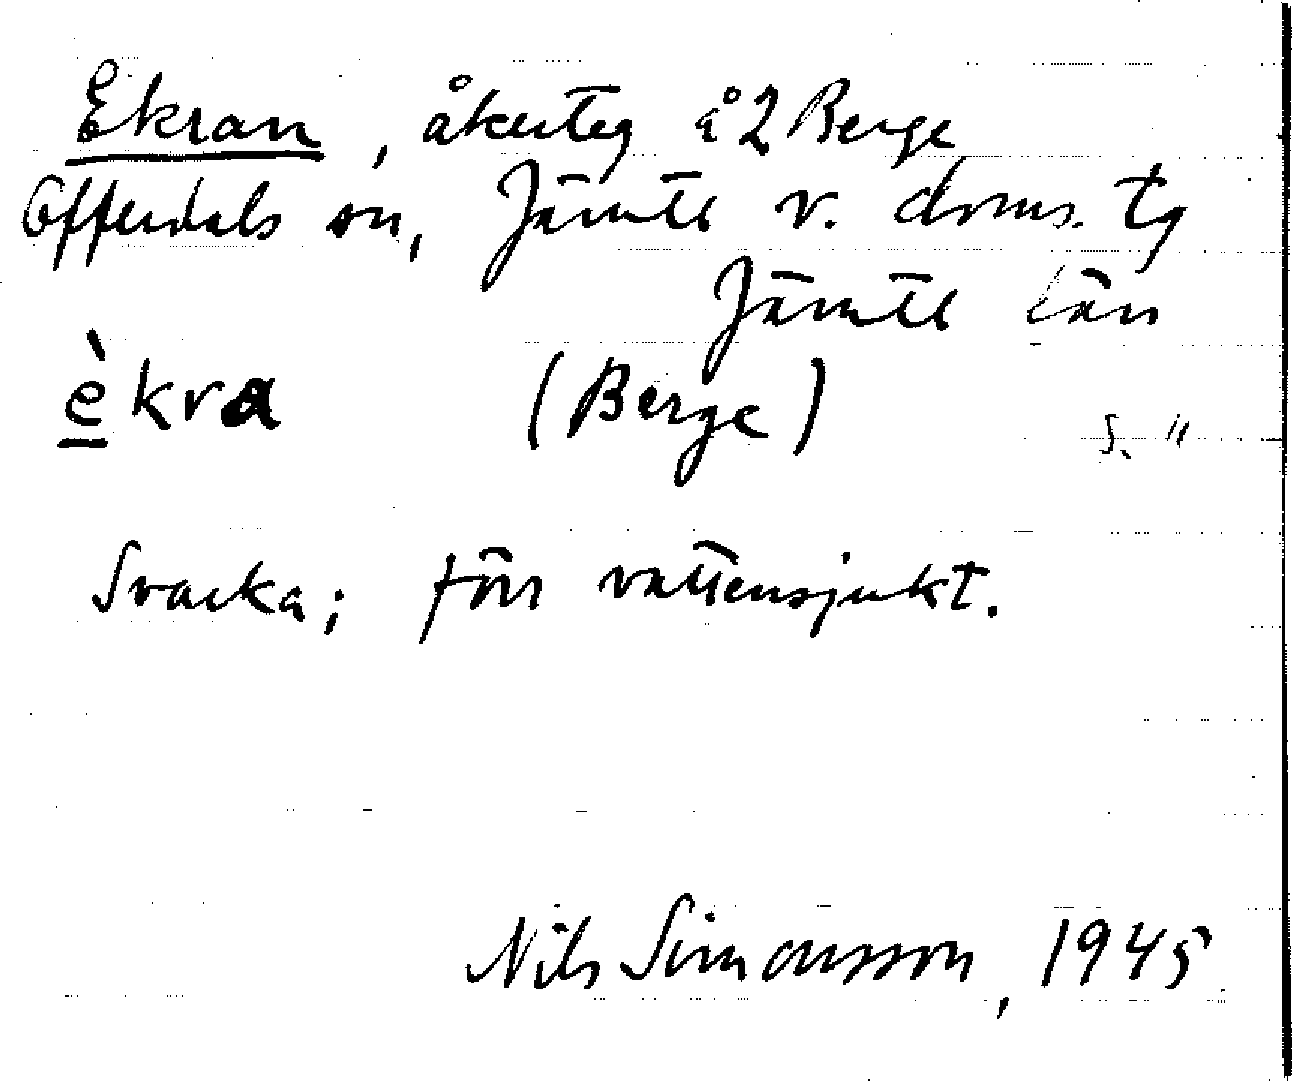 Ekran, åkerteg å 2 Berge
Offerdals sn, Jämtl v. doms. tg
Jämtl län
è̱kra (Berge) S. "
Svacka; förr vattensjukt.
Nils Simonsson, 1945